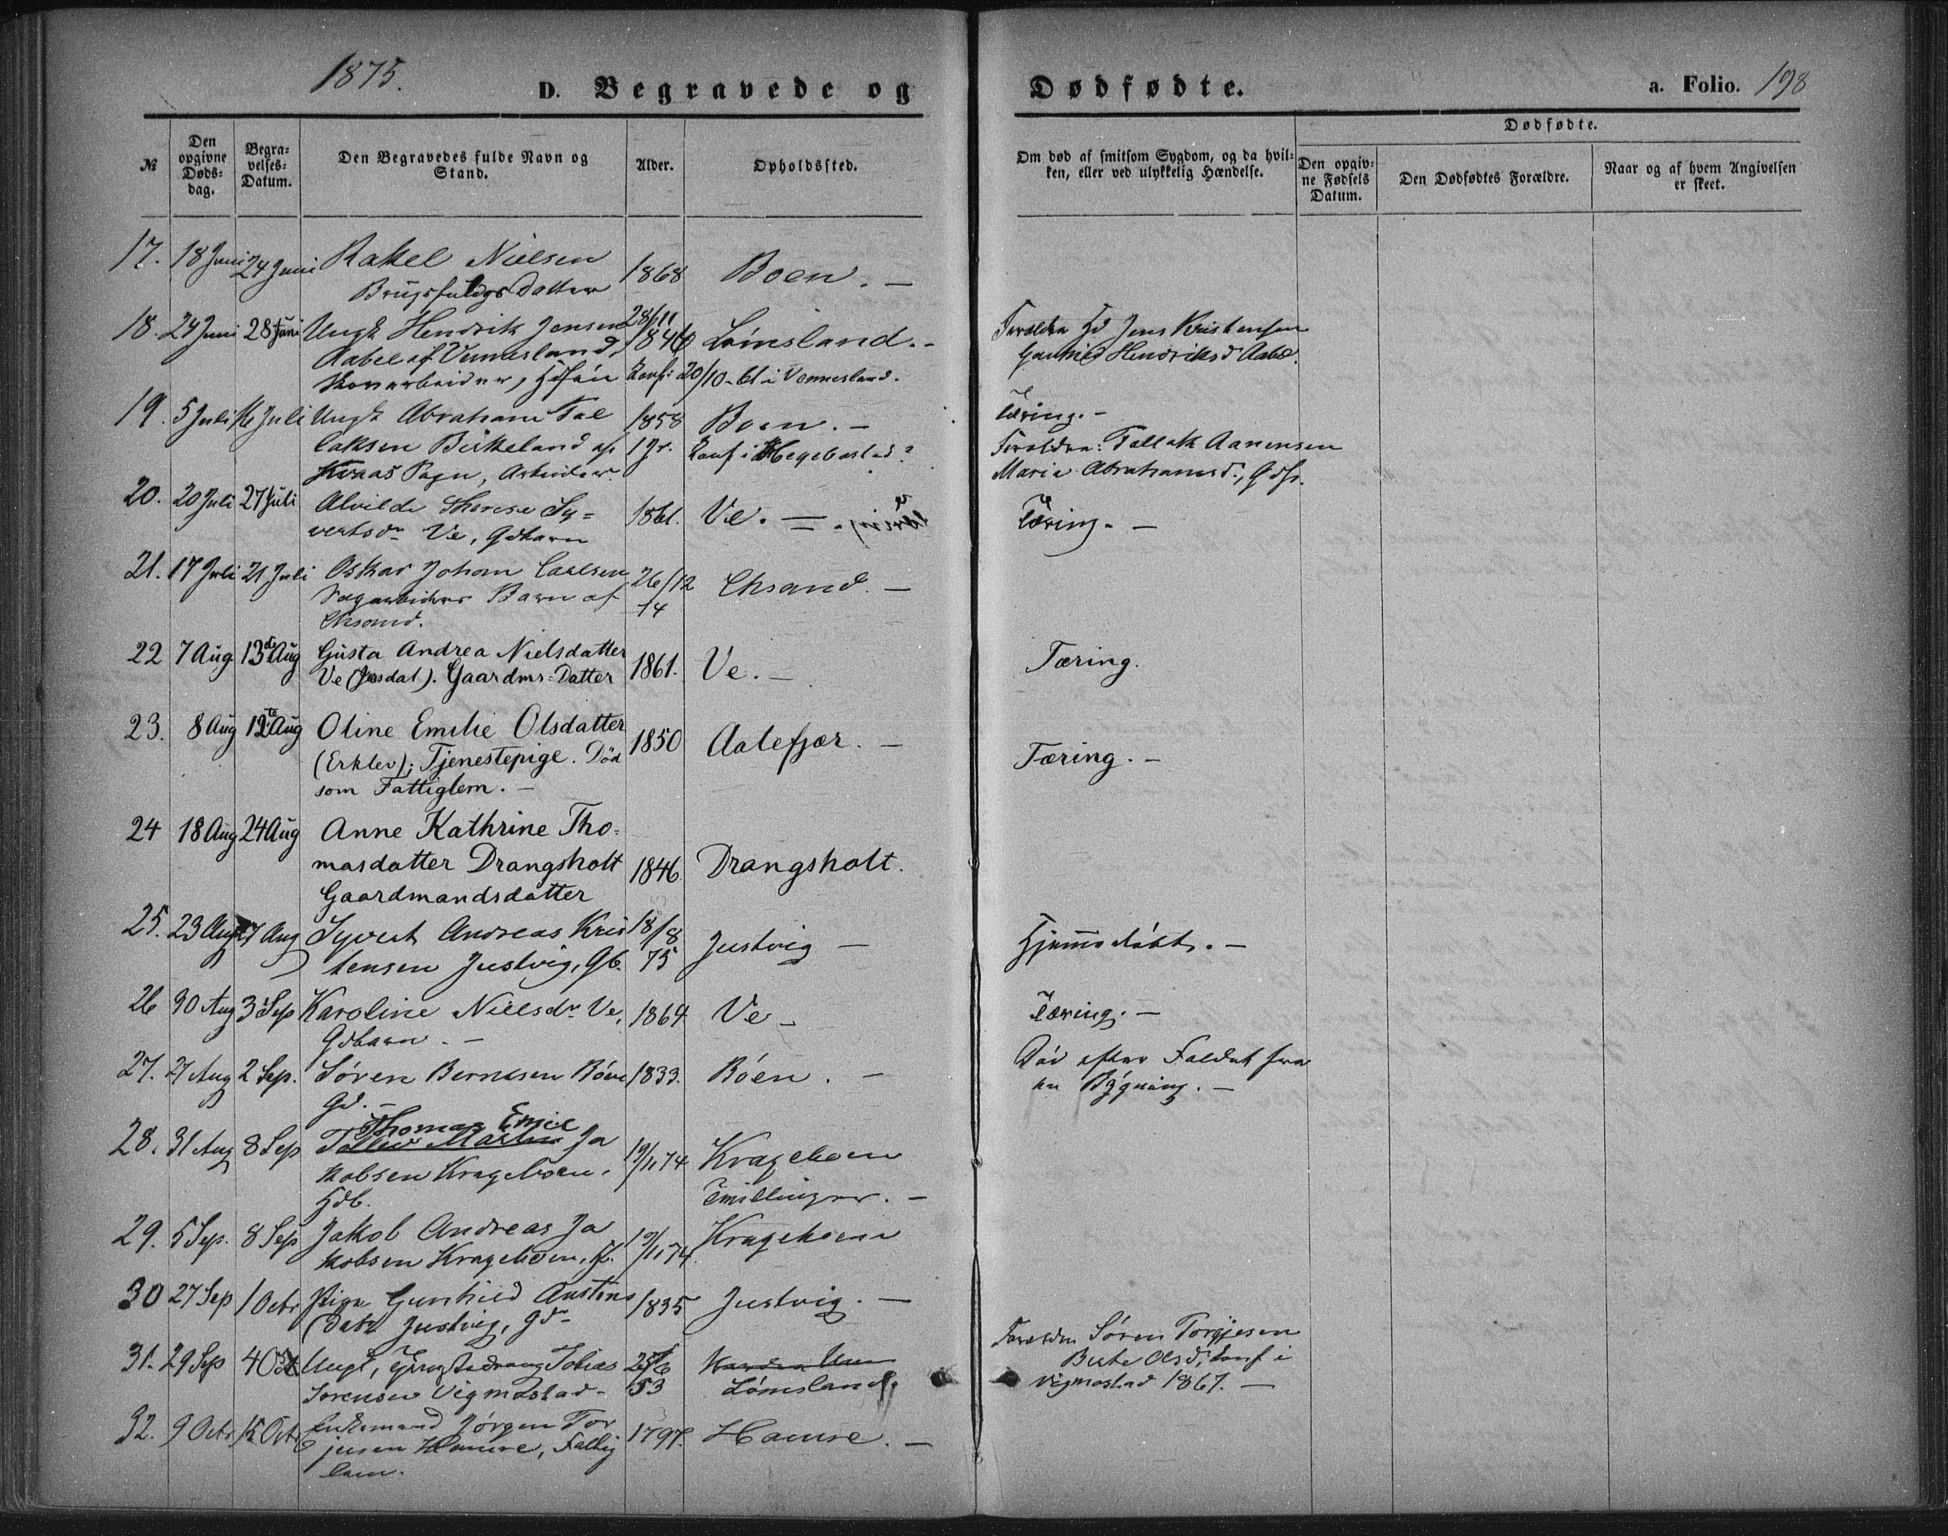 1875.
D. Begravede og Dødfødte. a. Folio. 198
№
Den opgivne Døds-dag.
Begra-velses-Datum.
Den Begravedes fulde Navn og Stand.
Alder.
Opholdssted.
Om død af smitsom Sygdom, og da hvil-ken, eller ved ulykkelig Hændelse.
Dødfødte.
Den opgiv-ne Fødsels Datum.
Den Dødfødtes Forældre.
Naar og af hvem Angivelsen er skeet.
17. 18 Juni 24 Juni Rakel Nielsen 1868 Boen. —
Datter
18. 24 Juni 28 Juni Ungk Hendrik Jensen 28/11 1846 Lømsland. —
Aabel af Vennesland,
Konf: 20/10-61 i Vennesland.
Forældre Jens Kristensen
Hendriksd Aabel.
19. 5 Juli Juli Ungk Abraham Tal 1858 Boen. — Tæring. —
laksen Birkeland af 1 Jr. Konf i Hegebostad?
Kvaas Sogn, Arbeider.
Forældre: Tallak Aanensen
Maria Abrahamsd.,
20. 20 Juli 27 Juli Alvilde Therese Sy= 1861. Ve. — Tæring. —
vertsdr Ve, Gdbarn
21. 17 Juli 21 Juli Oskar Johan Carlsen 26/12 74 Chsand. —
Barn af
Chsand.
22 7 Aug 13de Aug Gusta Andrea Nielsdatter 1861. Ve. — Tæring.
Ve Gaardms=Datter
23. 8 Aug 12te Aug Oline Emilie Olsdatter 1850 Aalefjær. — Tæring. —
(Erklev); Tjenestepige. Död
som Fattiglem. —
24 18 Aug 24 Aug Anne Kathrine Tho=
masdatter Drangsholt 1846. Drangsholt.
Gaardmandsdatter
25. 23 Aug 27 Aug Syvert Andreas Kris 18/8 75 Justvig —
tensen Justvig, Gb. Hjemmedøbt. —
26 30 Aug 3 Sep Karoline Nielsdr Ve, 1864 Ve — Tæring. —
Gdbarn. —
27. 27 Aug 2 Sep. Søren Berntsen Böen 1833. Böen. —
Gd. —
Död efter Faldet fra
en Bygning. —
28. 31 Aug 8 Sep Thomas Emil
Martin Ja 19/11 74 Krageboen
kobsen Krageboen,
Hdb. Tvillinger. —
29. 5 Sep. 8 Sep Jakob Andreas Ja 19/11 74. Krageboen
kobsen Krageboen,
30 27 Sep 1 Octr Pige Gunhild Austens 1835 Justvig. —
datr Justvig, Gdr
31. 29 Sep 4 Oct Ungk, Tobias 25/6 53
Sørensen Vigmostad — Lømsland.
Forældre Søren Torgjesen
Birte Olsd; konf i
Vigmostad 1867. —
32. 9 Octr 15 Octr Enkemand Jørgen Tor 1797. Hamre. —
jusen Hamre, Fattig
lem.